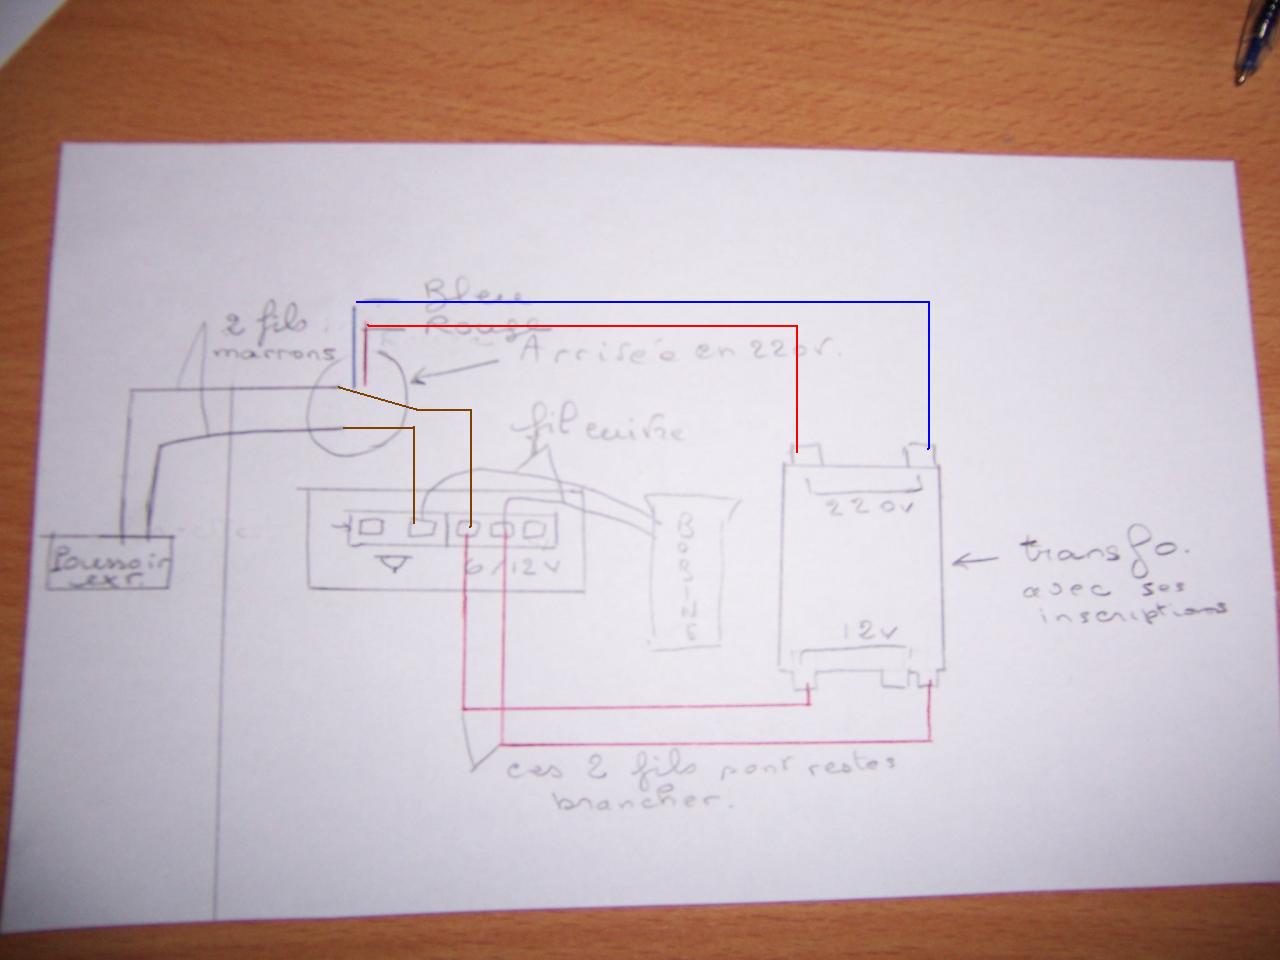 Bleu
Rouge
2 fils
marrons
Arrivée en 220v.
fil cuivre
220v
BOBINE
Poussoir
ext.
6/12V
transfo.
avec ses
inscriptions
12v
ces 2 fils sont restes
brancher.